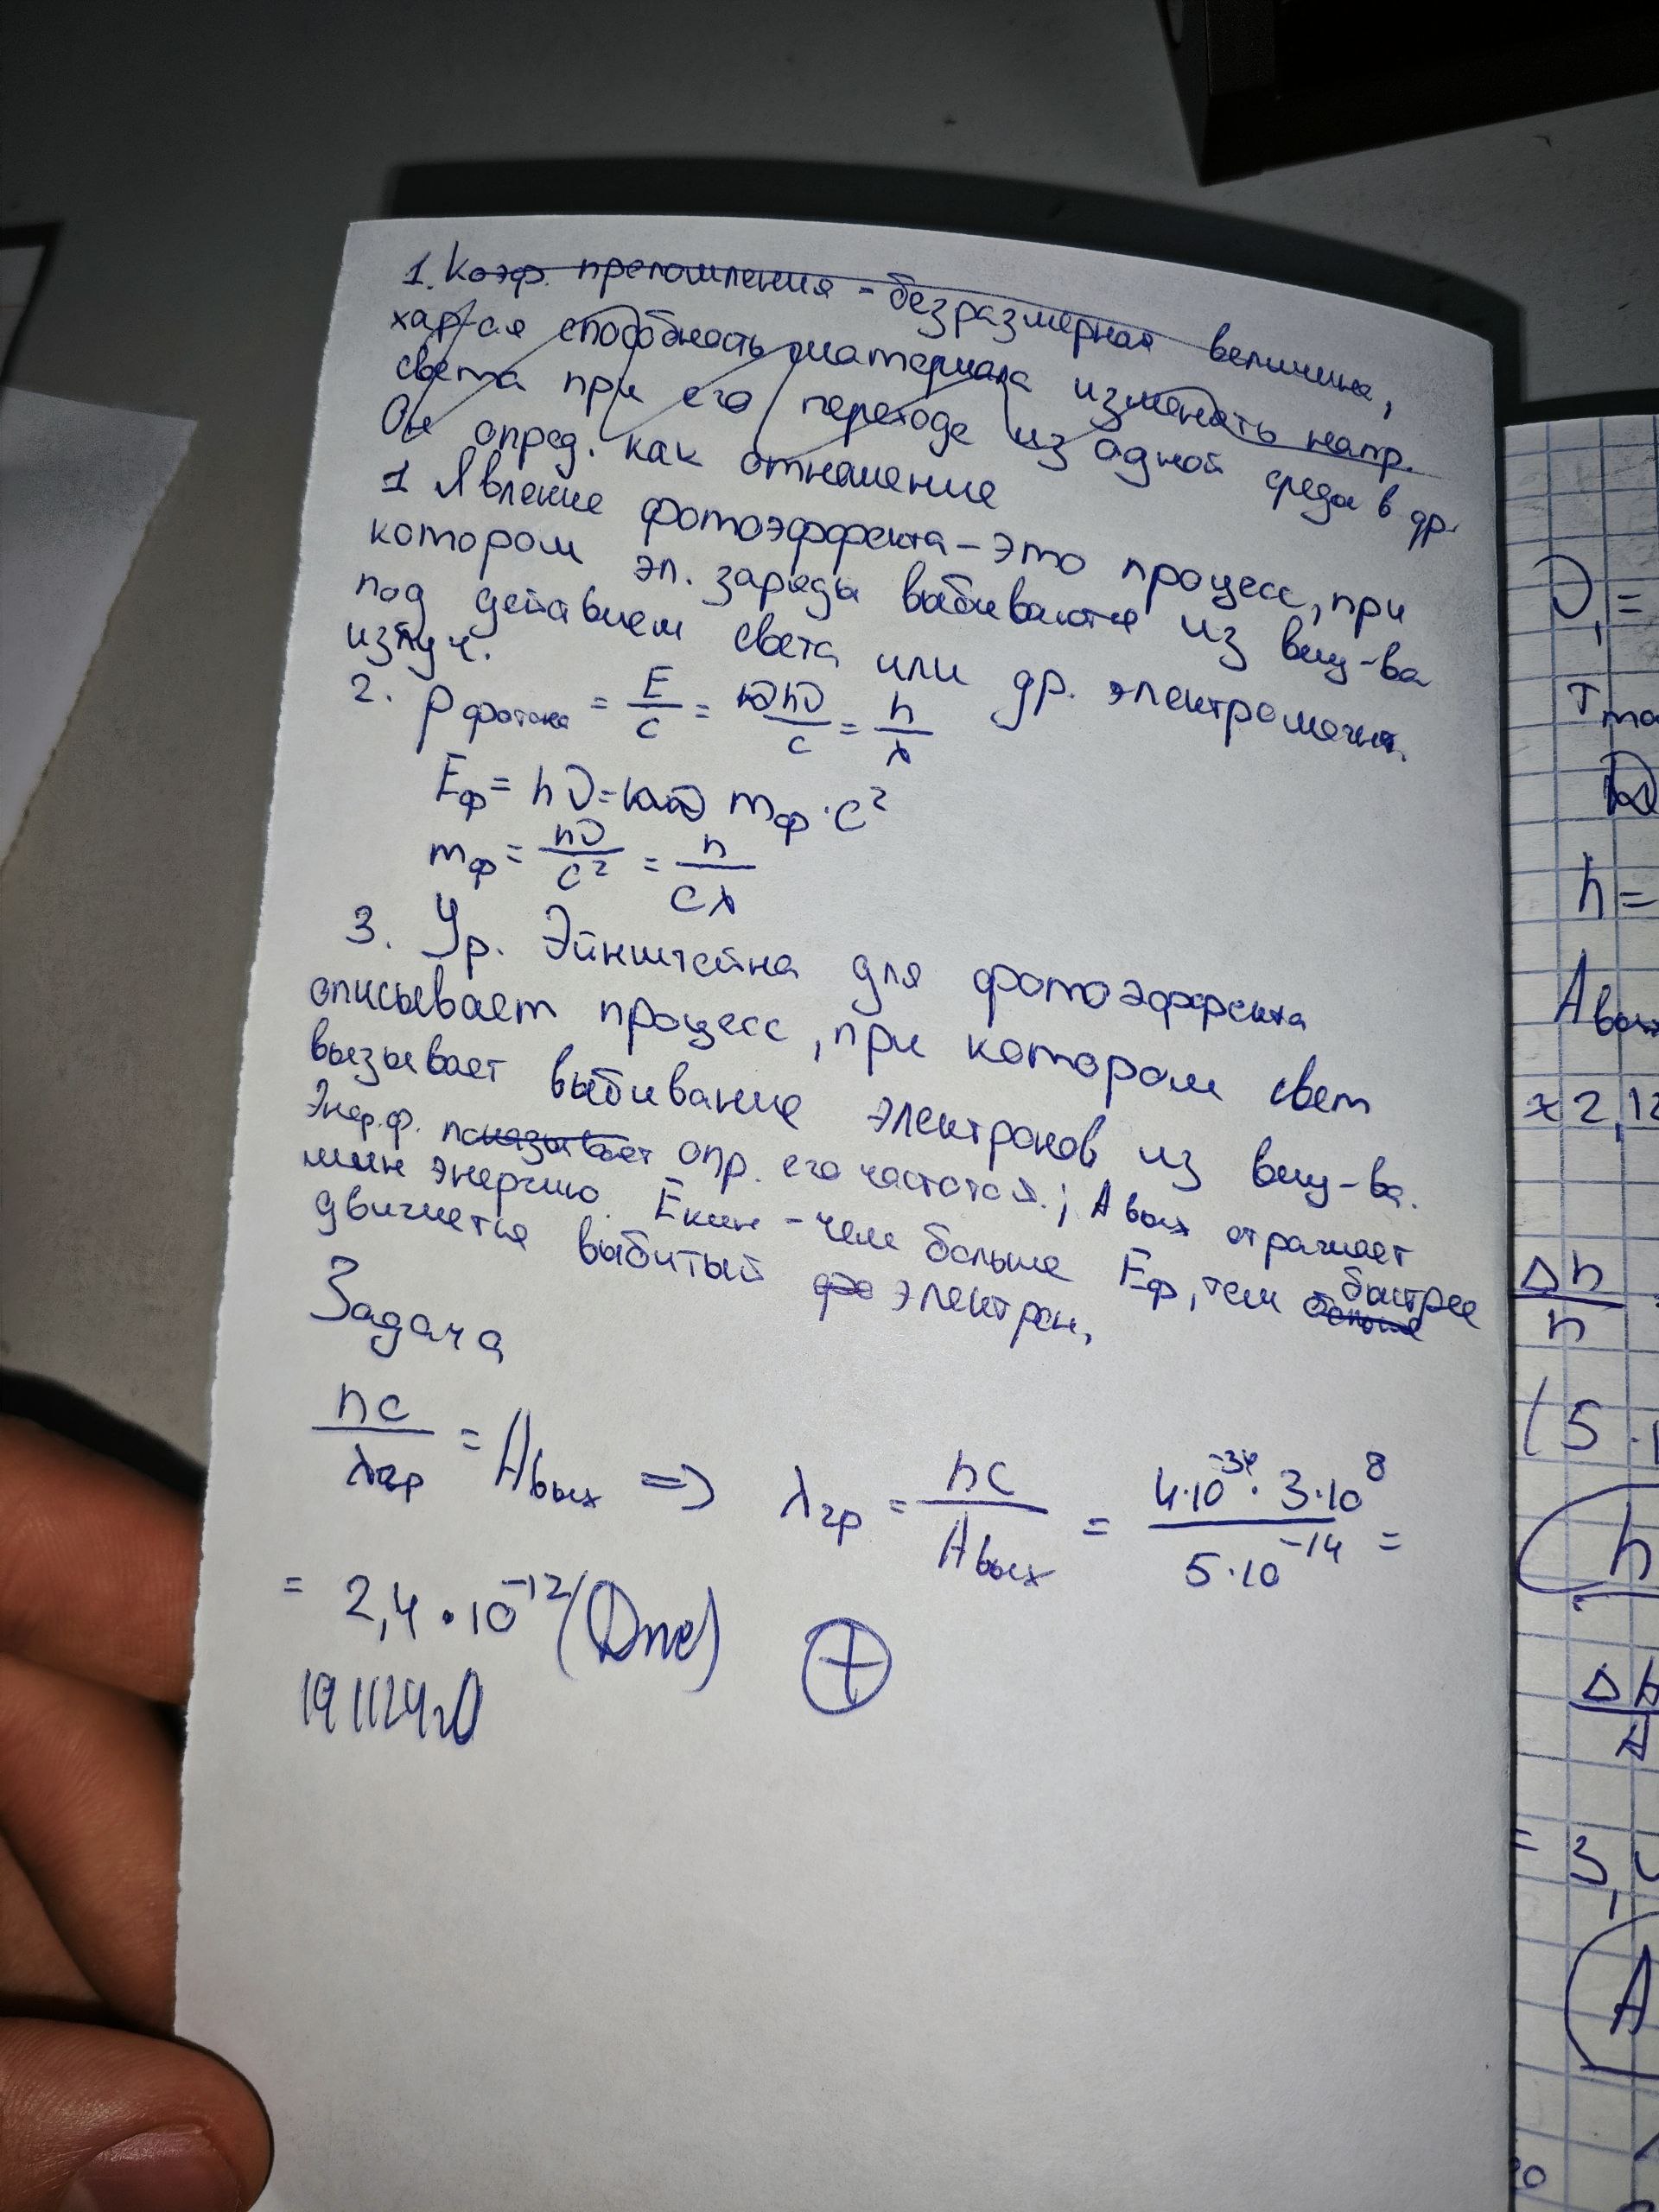 1. Коэф. преломления - безразмерная величина,
хар-ся способность материала изменять напр.
света при его переходе из одной среды в др.
Он опред. как отношение
1 Явление фотоэффекта - это процесс, при
котором эл. заряды выбиваются из вещ-ва
под действием света или др. электромагнит.
излуч.
2. p фотона = E/c = hν/c = h/λ
Eф = hν = mф · c²
mф = hν/c² = h/cλ
3. Ур. Эйнштейна для фотоэффекта
описывает процесс, при котором свет
вызывает выбивание электронов из вещ-ва.
Энер. ф. показывает опр. его частотой.; Aвых отражает
мин энергию. Eкин - чем больше Eф, тем быстрее
движется выбитый электрон,
Задача
hc/λгр = Aвых => λгр = hc/Aвых = 4·10⁻³⁴ · 3·10⁸ / 5·10⁻¹⁴ =
= 2,4 · 10⁻¹² (Дж) +
191124
ν₁ =
Tma
h =
Aвых
x 2,12
Δh/h
(5 · 1
h
= 3,
A